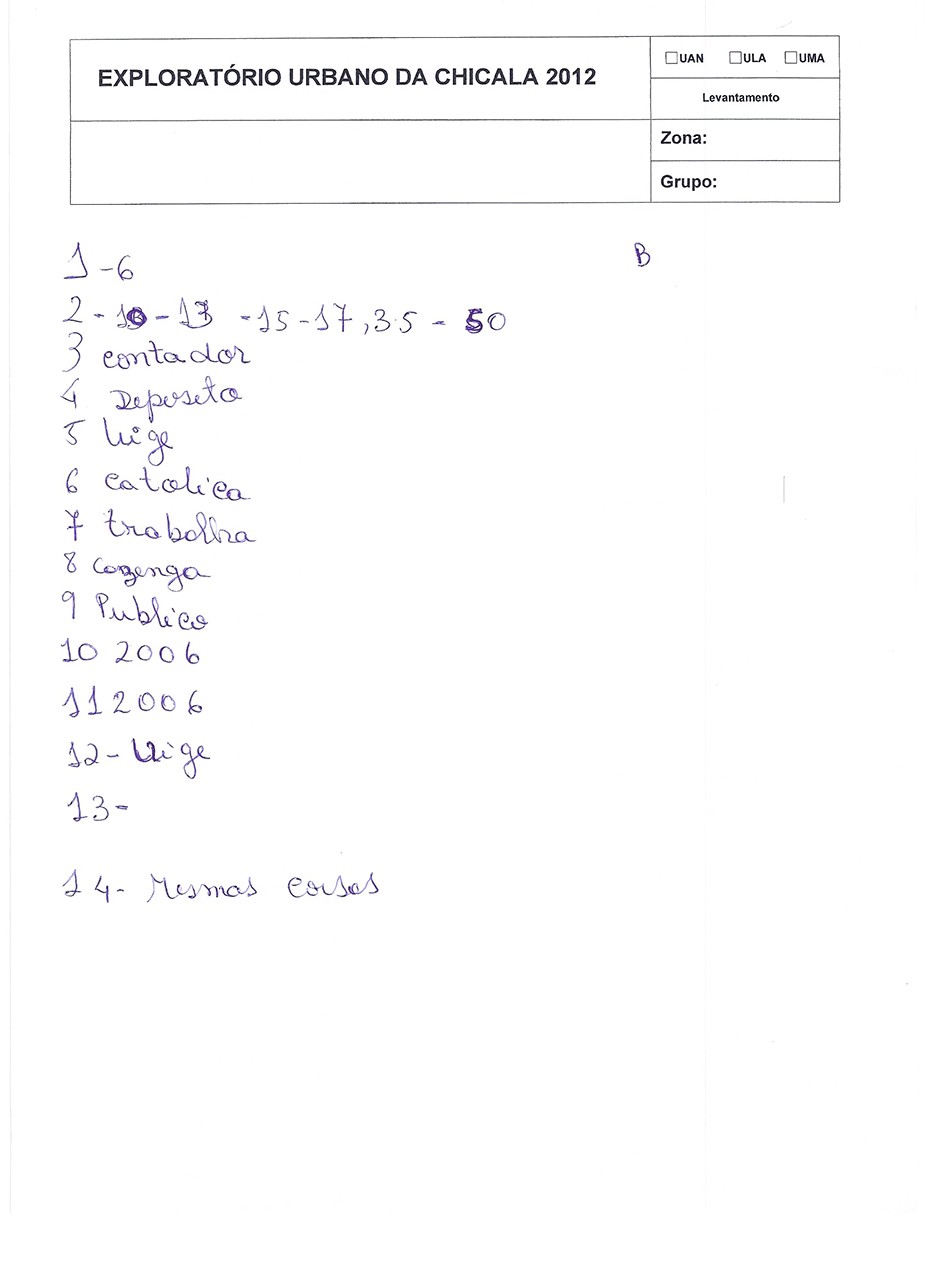 EXPLORATÓRIO URBANO DA CHICALA 2012
☐UAN ☐ULA ☐UMA
Levantamento
Zona:
Grupo:
B
1-6
2 - 10 - 13 - 15 - 17, 35 - 50
3 contador
4 Deposeto
5 Uige
6 catolica
7 trabalha
8 Cazenga
9 Publico
10 2006
11 2006
12 - Uige
13 -
14 - Mesmas coisas